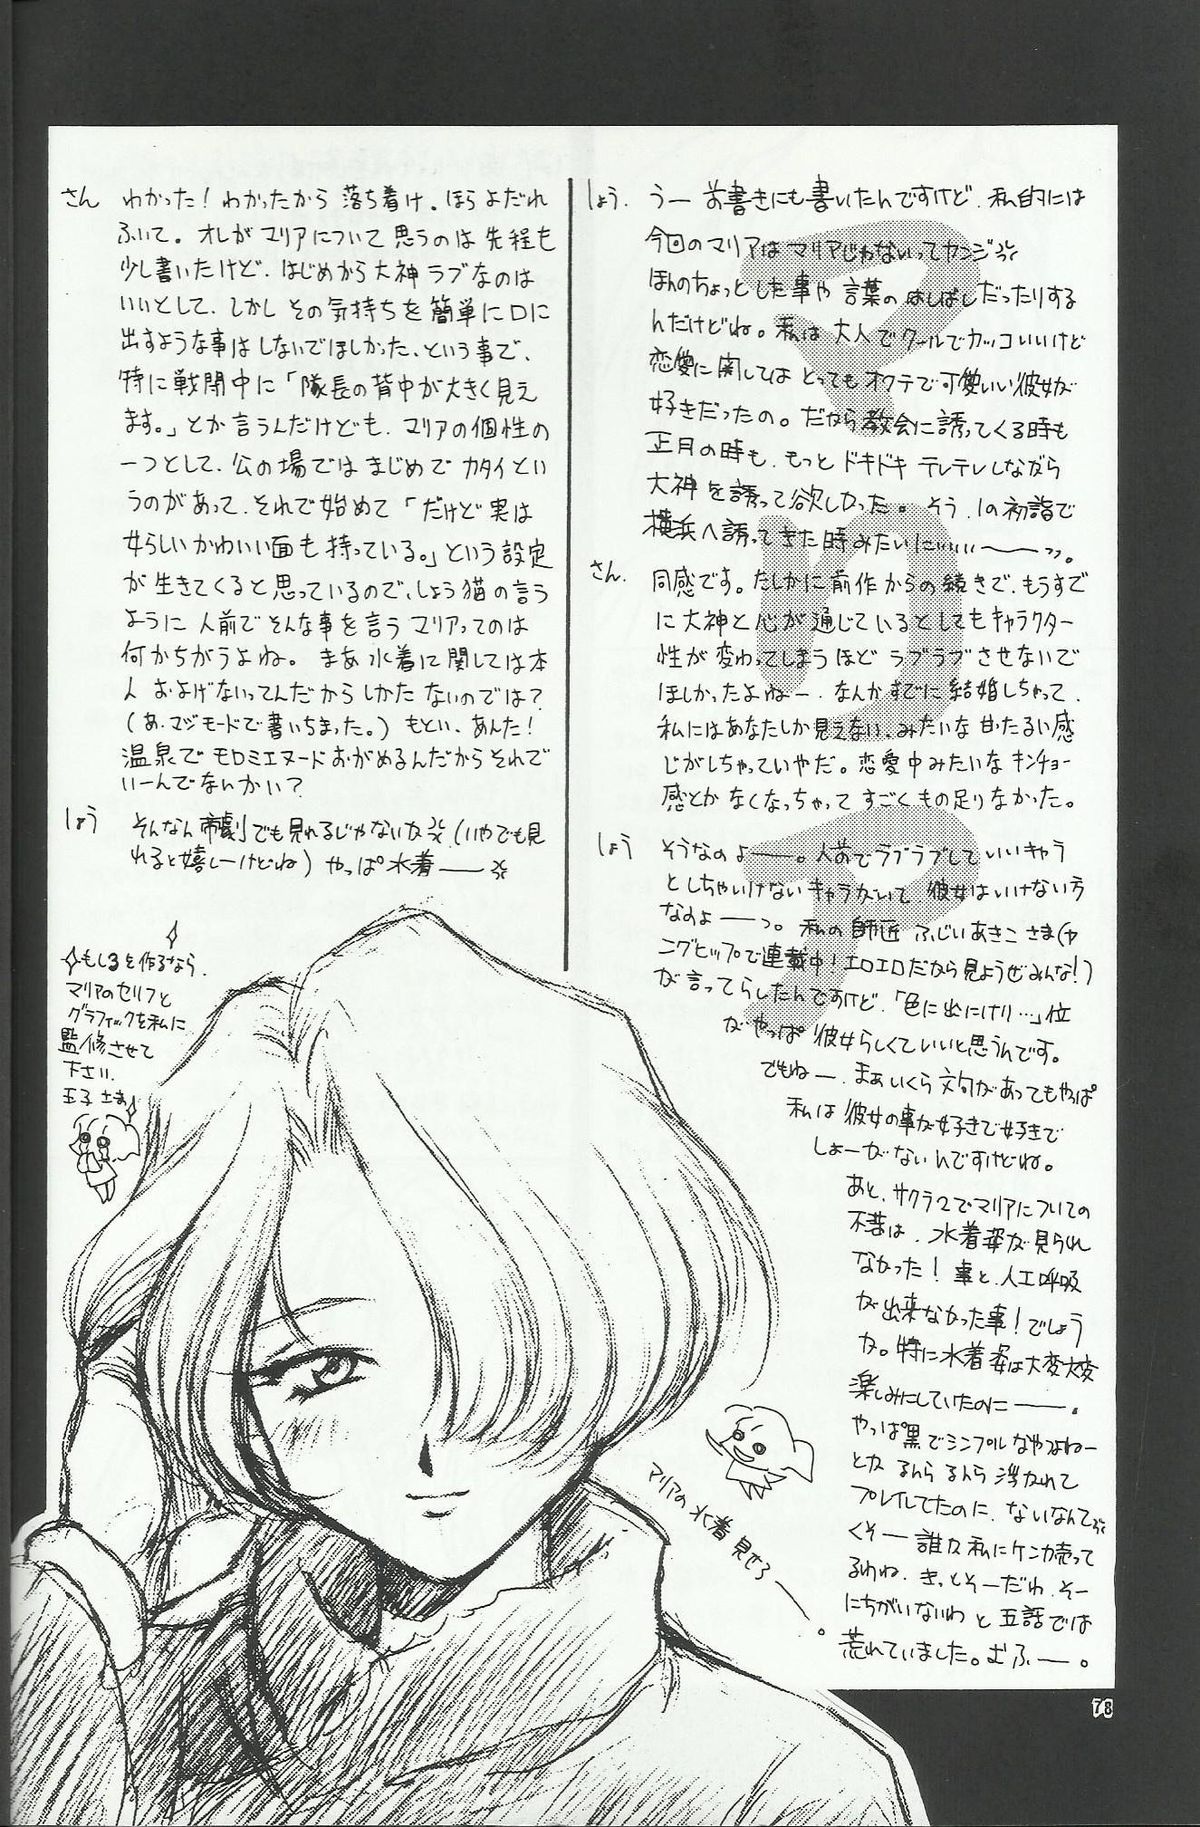 しょう. うー お書きにも書いたんですけど、私的には
今回のマリアはマリアじゃないってカンジ
ほんのちょっとした事や 言葉のはしばしだったりする
んだけどね。私は 大人でクールでカッコいいけど
恋愛に関しては とってもオクテで可愛いい彼女が
好きだったの。だから教会に誘ってくる時も
正月の時も、もっと ドキドキ テレテレしながら
大神を誘って欲しかった。そう、1の初詣で
横浜へ誘ってきた時みたいに……ーっ。
さん. 同感です。たしかに前作からの続きで、もうすで
に大神と心が通じているとしてもキャラクター
性が変わってしまうほど ラブラブさせないで
ほしかったよねー、なんかすでに結婚しちゃって、
私にはあなたしか見えない、みたいな甘たるい感
じがしちゃっていやだ。恋愛中みたいなキンチョー
感とかなくなっちゃって すごくもの足りなかった。
しょう そうなのよーー。人前でラブラブしていいキャラ
としちゃいけないキャラがいて 彼女はいけない方
なのよーーっ。私の師匠 ふじいあきこさま(ヤ
ングヒップで連載中!エロエロだから見ようぜみんな!)
が言ってらしたんですけど、「色に出にけり…」位
がやっぱ 彼女らしくていいと思うんです。
でもねー、まぁいくら文句があってもやっぱ
私は彼女の事が好きで好きで
しょーがないんですけどね。
あと、サクラ2でマリアについての
不満は、水着姿が見られ
なかった!事と、人工呼吸
が出来なかった事!でしょう
か。特に水着姿は大変大変
楽しみにしていたのにーー。
やっぱ黒でシンプルなやつよねー
とか るんら るんら 浮かれて
プレイしてたのに、ないなんて
くそー 誰か私にケンカ売って
るわね、きっとそーだわ、そー
にちがいないわ と五話では
荒れていました。むふー。
さん わかった!わかったから 落ち着け。ほらよだれ
ふいて。オレがマリアについて思うのは先程も
少し書いたけど、はじめから大神ラブなのは
いいとして、しかしその気持ちを簡単に口に
出すような事はしないでほしかった、という事で、
特に戦闘中に「隊長の背中が大きく見え
ます。」とか言うんだけども、マリアの個性の
一つとして、公の場ではまじめでカタイとい
うのがあって、それで始めて「だけど実は
女らしいかわいい面も持っている。」という設定
が生きてくると思っているので、しょう猫の言う
ように人前でそんな事を言うマリアってのは
何かちがうよね。まあ水着に関しては本
人およげないってんだからしかたないのでは?
(あ、マジモードで書いちまった。)もとい、あんた!
温泉でモロミエヌードおがめるんだからそれで
いーんでないかい?
しょう そんなん帝劇でも見れるじゃないか(いやでも見
れると嬉しーけどね)やっぱ水着ーー
もし3を作るなら、
マリアのセリフと
グラフィックを私に
監修させて
下さい、
王子さま
マリアの水着見せろーー。
78